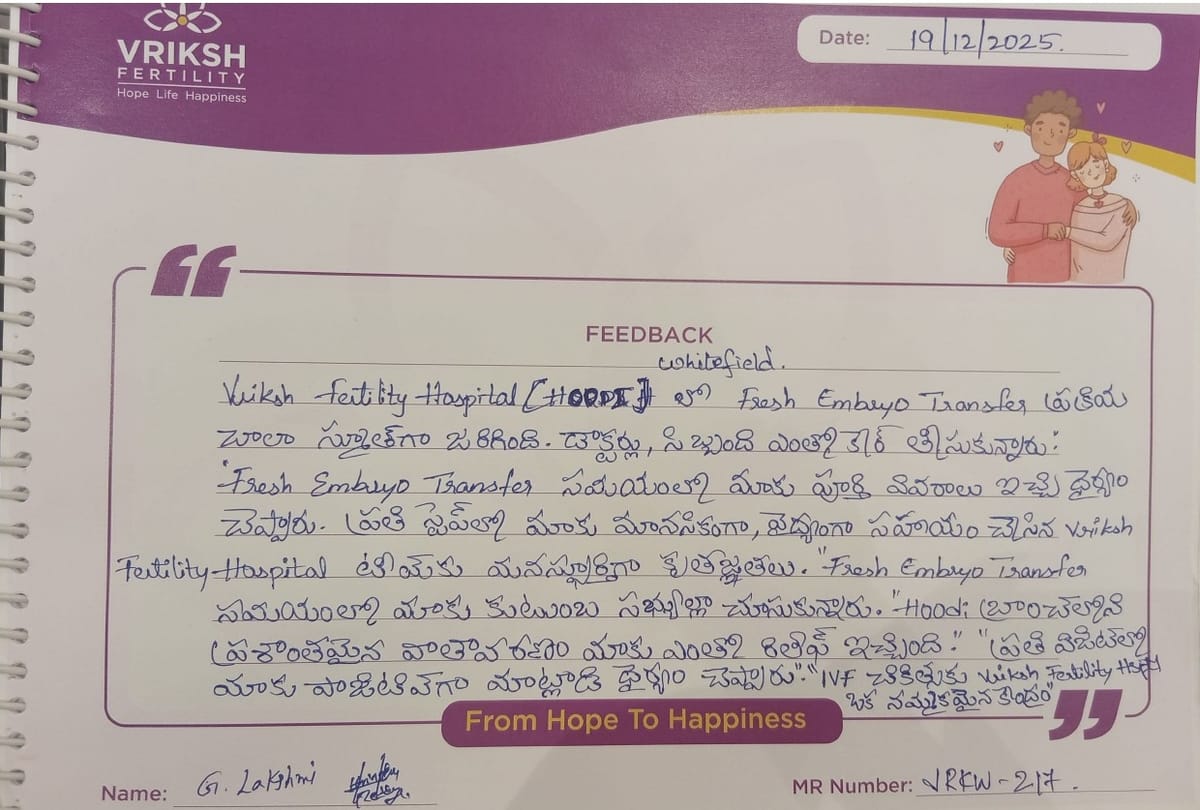 VRIKSH
FERTILITY
Hope Life Happiness
Date: 19/12/2025.
FEEDBACK
Whitefield.
Vriksh Fertility Hospital [HOODI] లో Fresh Embryo Transfer ప్రక్రియ
చాలా స్మూత్‌గా జరిగింది. డాక్టర్లు, సిబ్బంది ఎంతో కేర్ తీసుకున్నారు."
"Fresh Embryo Transfer సమయంలో మాకు పూర్తి వివరాలు ఇచ్చి ధైర్యం
చెప్పారు. ప్రతి స్టెప్‌లో మాకు మానసికంగా, వైద్యంగా సహాయం చేసిన Vriksh
Fertility Hospital టీమ్‌కు మనస్ఫూర్తిగా కృతజ్ఞతలు. "Fresh Embryo Transfer
సమయంలో మాకు కుటుంబ సభ్యుల్లా చూసుకున్నారు. "Hoodi బ్రాంచ్‌లోని
ప్రశాంతమైన వాతావరణం మాకు ఎంతో రిలీఫ్ ఇచ్చింది." "ప్రతి విజిట్‌లో
మాకు పాజిటివ్‌గా మాట్లాడి ధైర్యం చెప్పారు." "IVF చికిత్సకు Vriksh Fertility
ఒక నమ్మకమైన కేంద్రం"
From Hope To Happiness
Name: G. Lakshmi
MR Number: VRKW-217.